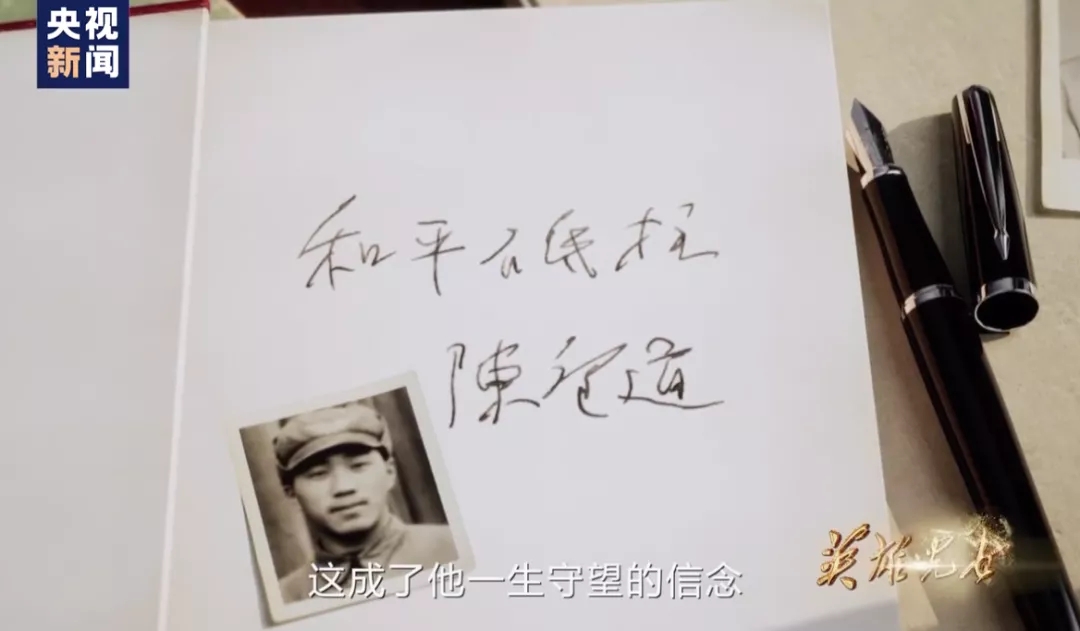 央视
新闻
和平砥柱
陳 道
这成了他一生守望的信念
英雄儿女